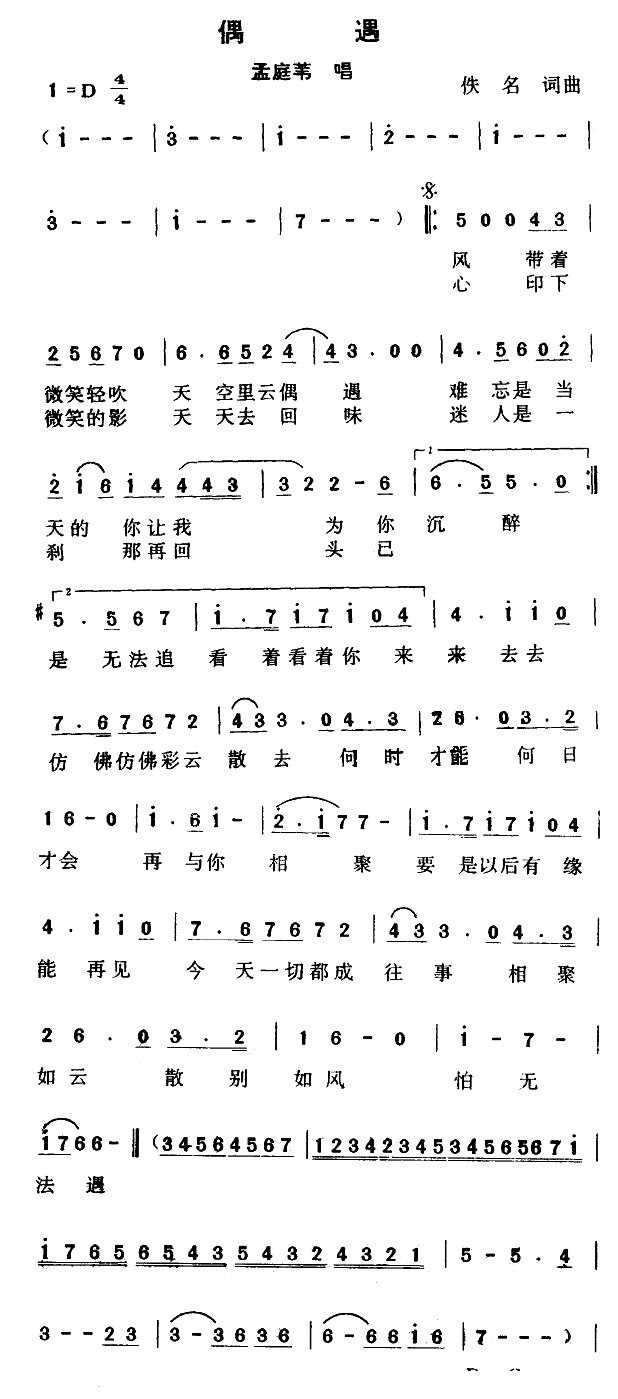 偶 遇
孟庭苇 唱
1=D 4/4
佚 名 词曲
(i - - - | 3 - - - | i - - - | 2 - - - | i - - - |
3 - - - | i - - - | 7 - - - ) ‖: 5 0 0 4 3 |
风 带着
心 印下
2 5 6 7 0 | 6 . 6 5 2 4 | 4 3 . 0 0 | 4 . 5 6 0 2 |
微笑轻吹 天 空里云偶 遇 难 忘是 当
微笑的影 天 天去 回 味 迷 人是 一
2 i 6 i 4 4 4 3 | 3 2 2 - 6 | 6 . 5 5 . 0 :‖
天的 你让我 为 你 沉 醉
刹 那再回 头 已
#5 . 5 6 7 | i . 7 i 7 i 0 4 | 4 . i i 0 |
是 无法追 看 着看着你 来 来 去去
7 . 6 7 6 7 2 | 4 3 3 . 0 4 . 3 | 2 6 . 0 3 . 2 |
仿 佛仿佛彩云 散 去 何 时 才能 何 日
1 6 - 0 | i . 6 i - | 2 . i 7 7 - | i . 7 i 7 i 0 4 |
才会 再 与你 相 聚 要 是以后有 缘
4 . i i 0 | 7 . 6 7 6 7 2 | 4 3 3 . 0 4 . 3 |
能 再见 今 天一切都成 往 事 相 聚
2 6 . 0 3 . 2 | 1 6 - 0 | i - 7 - |
如云 散 别 如风 怕 无
i 7 6 6 - ‖ (3 4 5 6 4 5 6 7 | 1 2 3 4 2 3 4 5 3 4 5 6 5 6 7 i |
法 遇
i 7 6 5 6 5 4 3 5 4 3 2 4 3 2 1 | 5 - 5 . 4 |
3 - - 2 3 | 3 - 3 6 3 6 | 6 - 6 6 i 6 | 7 - - - ) |